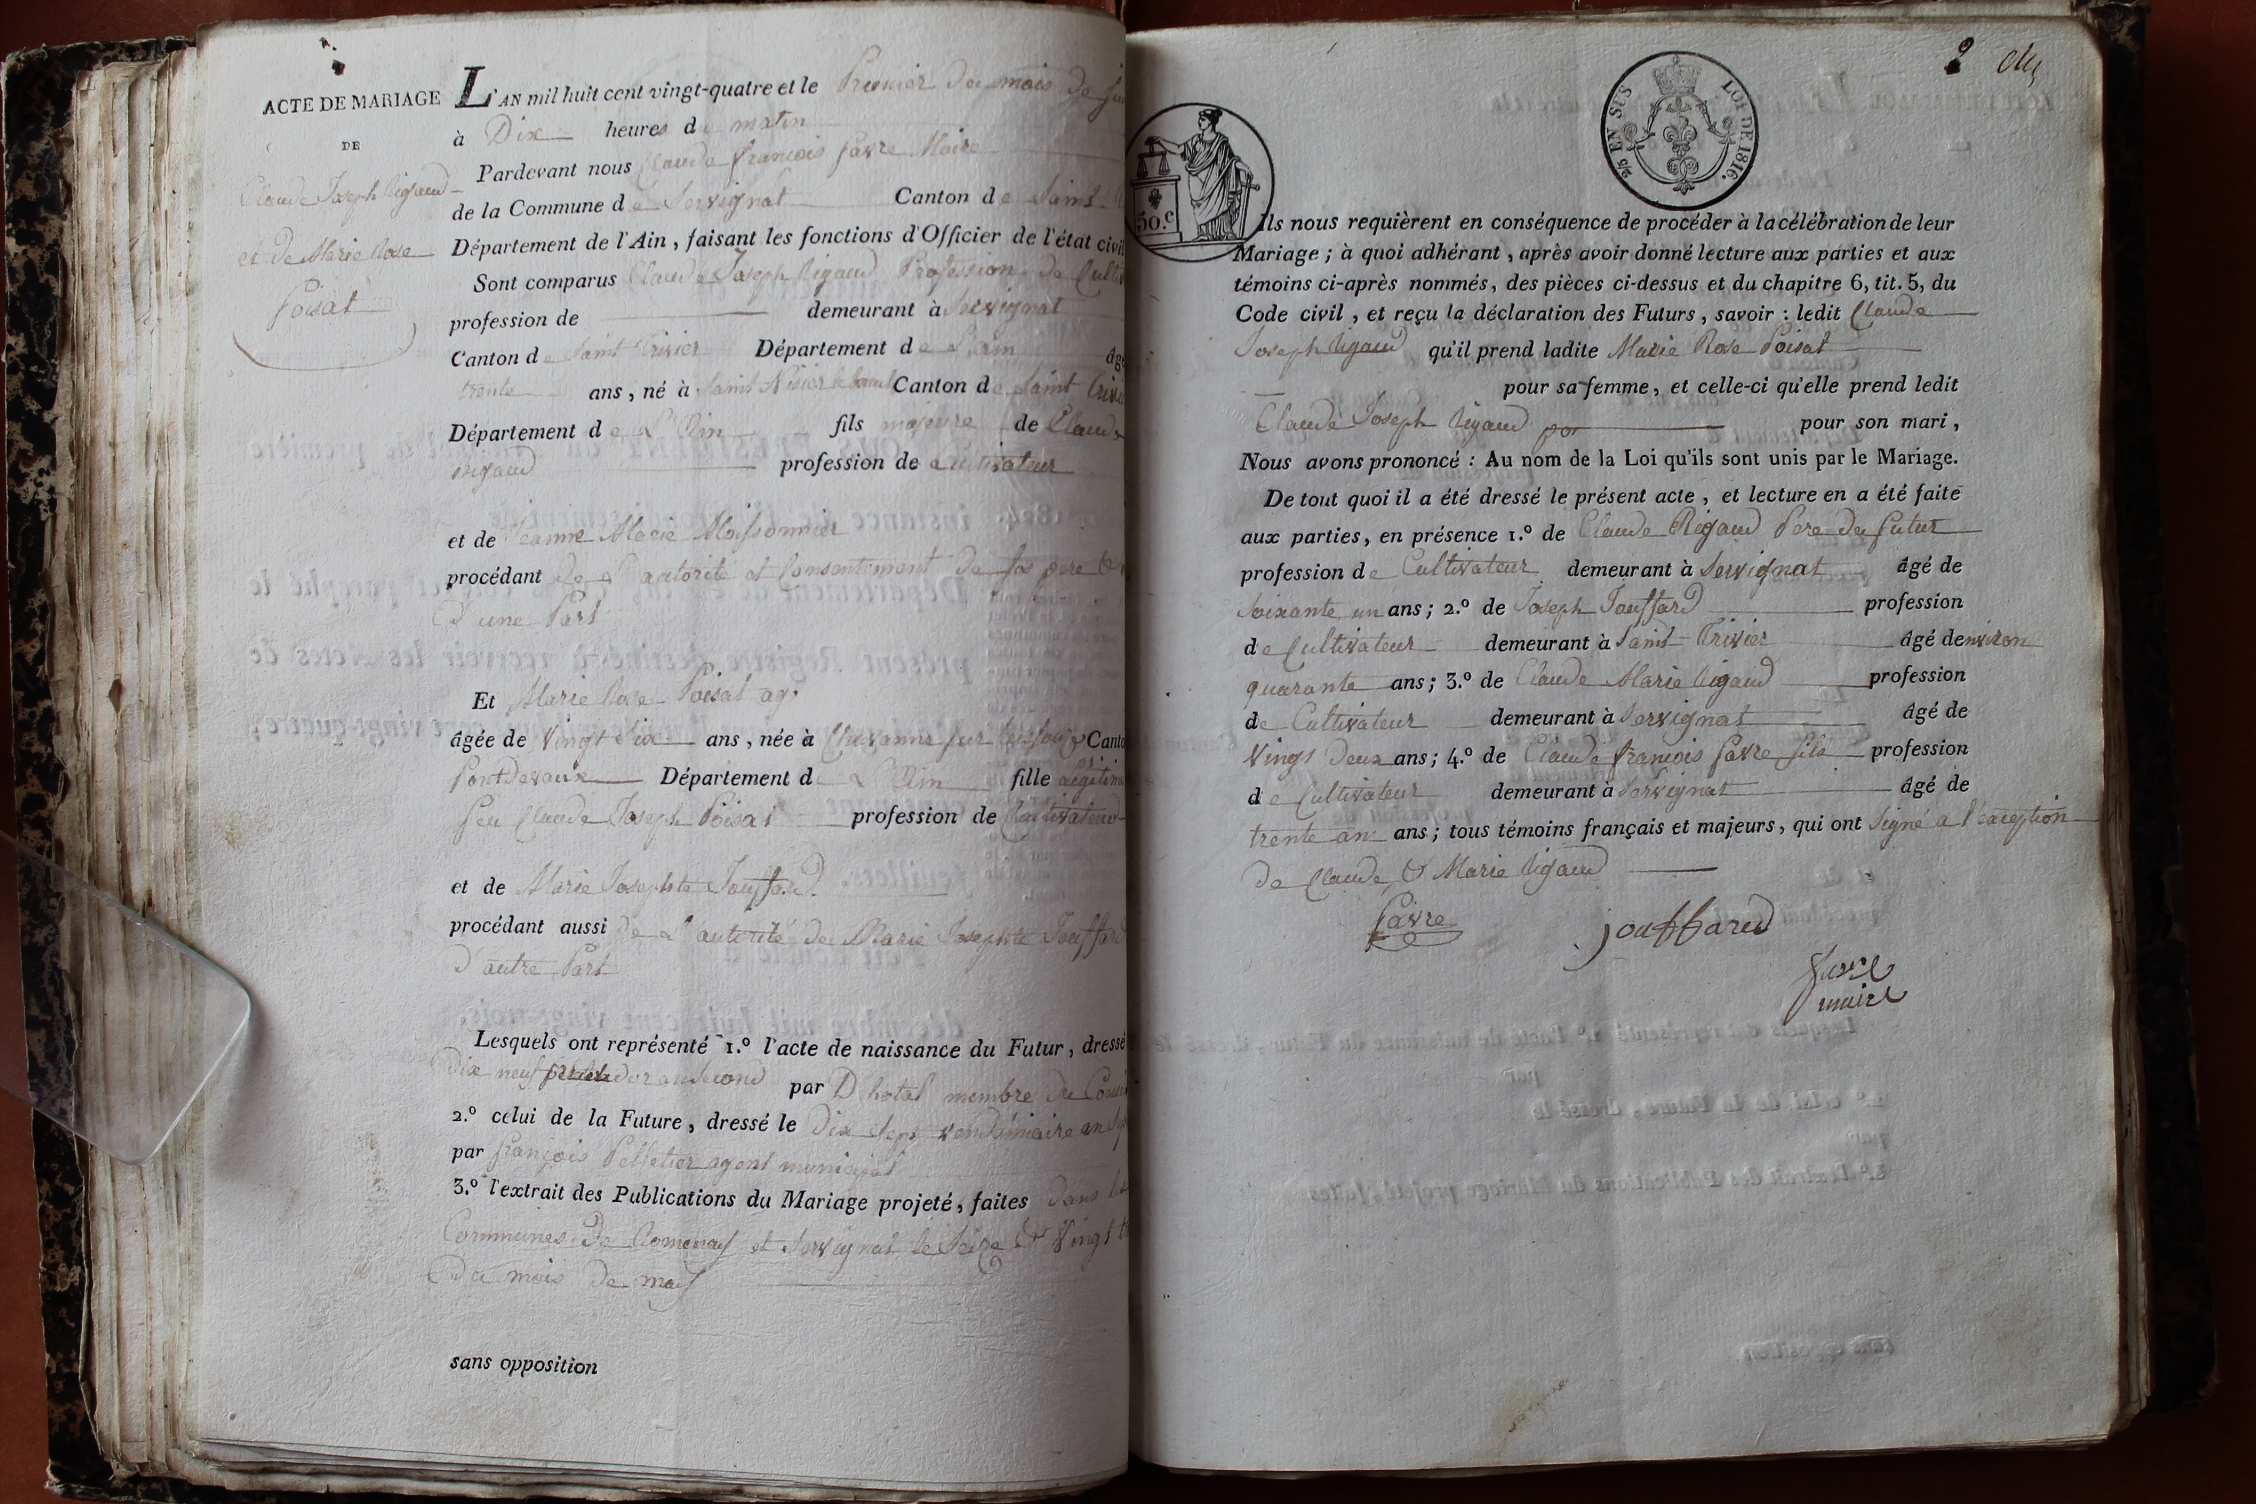 ACTE DE MARIAGE
DE
Claude Joseph Rigaud
et de Marie Rose
Poisat
L'AN mil huit cent vingt-quatre et le Premier du mois de
à Dix heures du matin
Pardevant nous Claude françois favre Maire
de la Commune de Servignat Canton de Saint
Département de l'Ain, faisant les fonctions d'Officier de l'état civil
Sont comparus Claude Joseph Rigaud Profession de
profession de demeurant à Servignat
Canton de Saint Trivier Département de L'ain âgé
trente ans, né à Saint Nisier le Canton de Saint
Département de L'Ain fils majeure de Claude
rigaud profession de Cultivateur
et de Jeanne Marie Moissonnier
procédant de L'autorité et Consentement de ses pere
D'une Part
Et Marie Rose Poisat
âgée de Vingt Six ans, née à Chevanne sur Canton
Pontdevaux Département de L'Ain fille
feu Claude Joseph Poisat profession de Cultivateur
et de Marie Josephte Jouffard
procédant aussi de L'autorité de Marie Josephte Jouffard
D'autre Part
Lesquels ont représenté 1.º l'acte de naissance du Futur, dressé
dix neuf an second par Dhotel membre du
2.º celui de la Future, dressé le dix Sept vendémiaire an
par françois Pelletier agent municipal
3.º l'extrait des Publications du Mariage projeté, faites dans les
Communes de Romenay et Servignat le Seize & Vingt
du mois de may
sans opposition
2
50.c
25 EN SUS
LOI DE 1816.
Ils nous requièrent en conséquence de procéder à la célébration de leur
Mariage ; à quoi adhérant, après avoir donné lecture aux parties et aux
témoins ci-après nommés, des pièces ci-dessus et du chapitre 6, tit. 5, du
Code civil, et reçu la déclaration des Futurs, savoir : ledit Claude
Joseph Rigaud qu'il prend ladite Marie Rose Poisat
pour sa femme, et celle-ci qu'elle prend ledit
Claude Joseph Rigaud pour son mari,
Nous avons prononcé : Au nom de la Loi qu'ils sont unis par le Mariage.
De tout quoi il a été dressé le présent acte, et lecture en a été faite
aux parties, en présence 1.º de Claude Rigaud Pere du futur
profession de Cultivateur demeurant à Servignat âgé de
soixante un ans ; 2.º de Joseph Jouffard profession
de Cultivateur demeurant à Saint Trivier âgé denviron
quarante ans ; 3.º de Claude Marie Rigaud profession
de Cultivateur demeurant à Servignat âgé de
Vingt Deux ans ; 4.º de Claude françois favre fils profession
de Cultivateur demeurant à Servignat âgé de
trente an ans ; tous témoins français et majeurs, qui ont Signé a l'exception
de Claude & Marie Rigaud
favre
jouffard
favre
maire